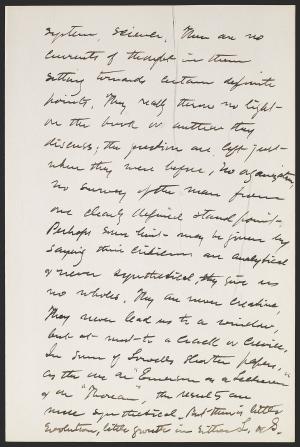 system, science. There are no
currents of thought in them
setting towards certain definite
points. They really throw no light
on the book or author they
discuss; the questions are left just
where they were before, no organization,
no survey of the man from
one clearly defined stand point.
Perhaps some hint may be given by
saying their criticisms are analytical
& never synthetical, they give us
no wholes. They are never creative,
They never lead us to a window,
but at most to a crack or crevice.
In some of Lowells shorter papers,
as the one on "Emerson as a Lecturer"
& on "Thoreau", the results are
more synthetical. But there is little
evolution, little growth in either L. or S.